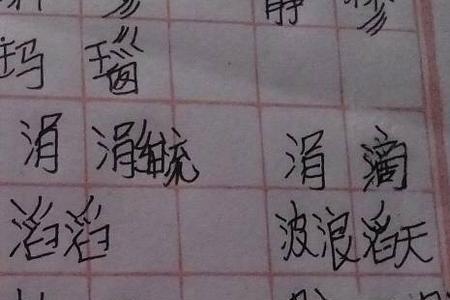 静 修
玛 瑙
涓 涓细流 涓 滴
滔滔 波浪滔天